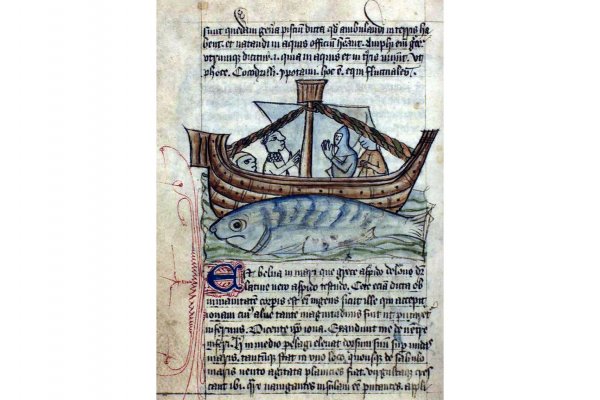 sunt quedam gen̄a pisciū dicta qd̄ ambulandi in terris ha
bent. et natandi in aquis officiū hn̄t. Amphi em̄ grec̄
utrumque dicitur .i. quia in aquis et in t̄ris uiuūt. Vt
phoce. Cocodrilli. ypotami. hoc ē. equi fluctuales.
Est belua in mari que grece aspido delone dr̄
latine vero aspido testudo. Cete eciā dicta ob
inmanitatem corpis est em̄ ingens sicut ille qui accepit
ionam cui᷒ alu᷒ tante magnitudinis fuit ut putaret᷒
infernus. Dicente ip̄o iona. Exaudiuit me de uentre
inferi. H̄ in medio pelagi eleuat dorsum suū sup̄ undas
maris. tantūque stat in uno loco. quousque de sabulo
maris uento agitata planicies fiat. uirgultaque cres
cant ibi. Qr̄e nauigantes insulam eē putantes. appli